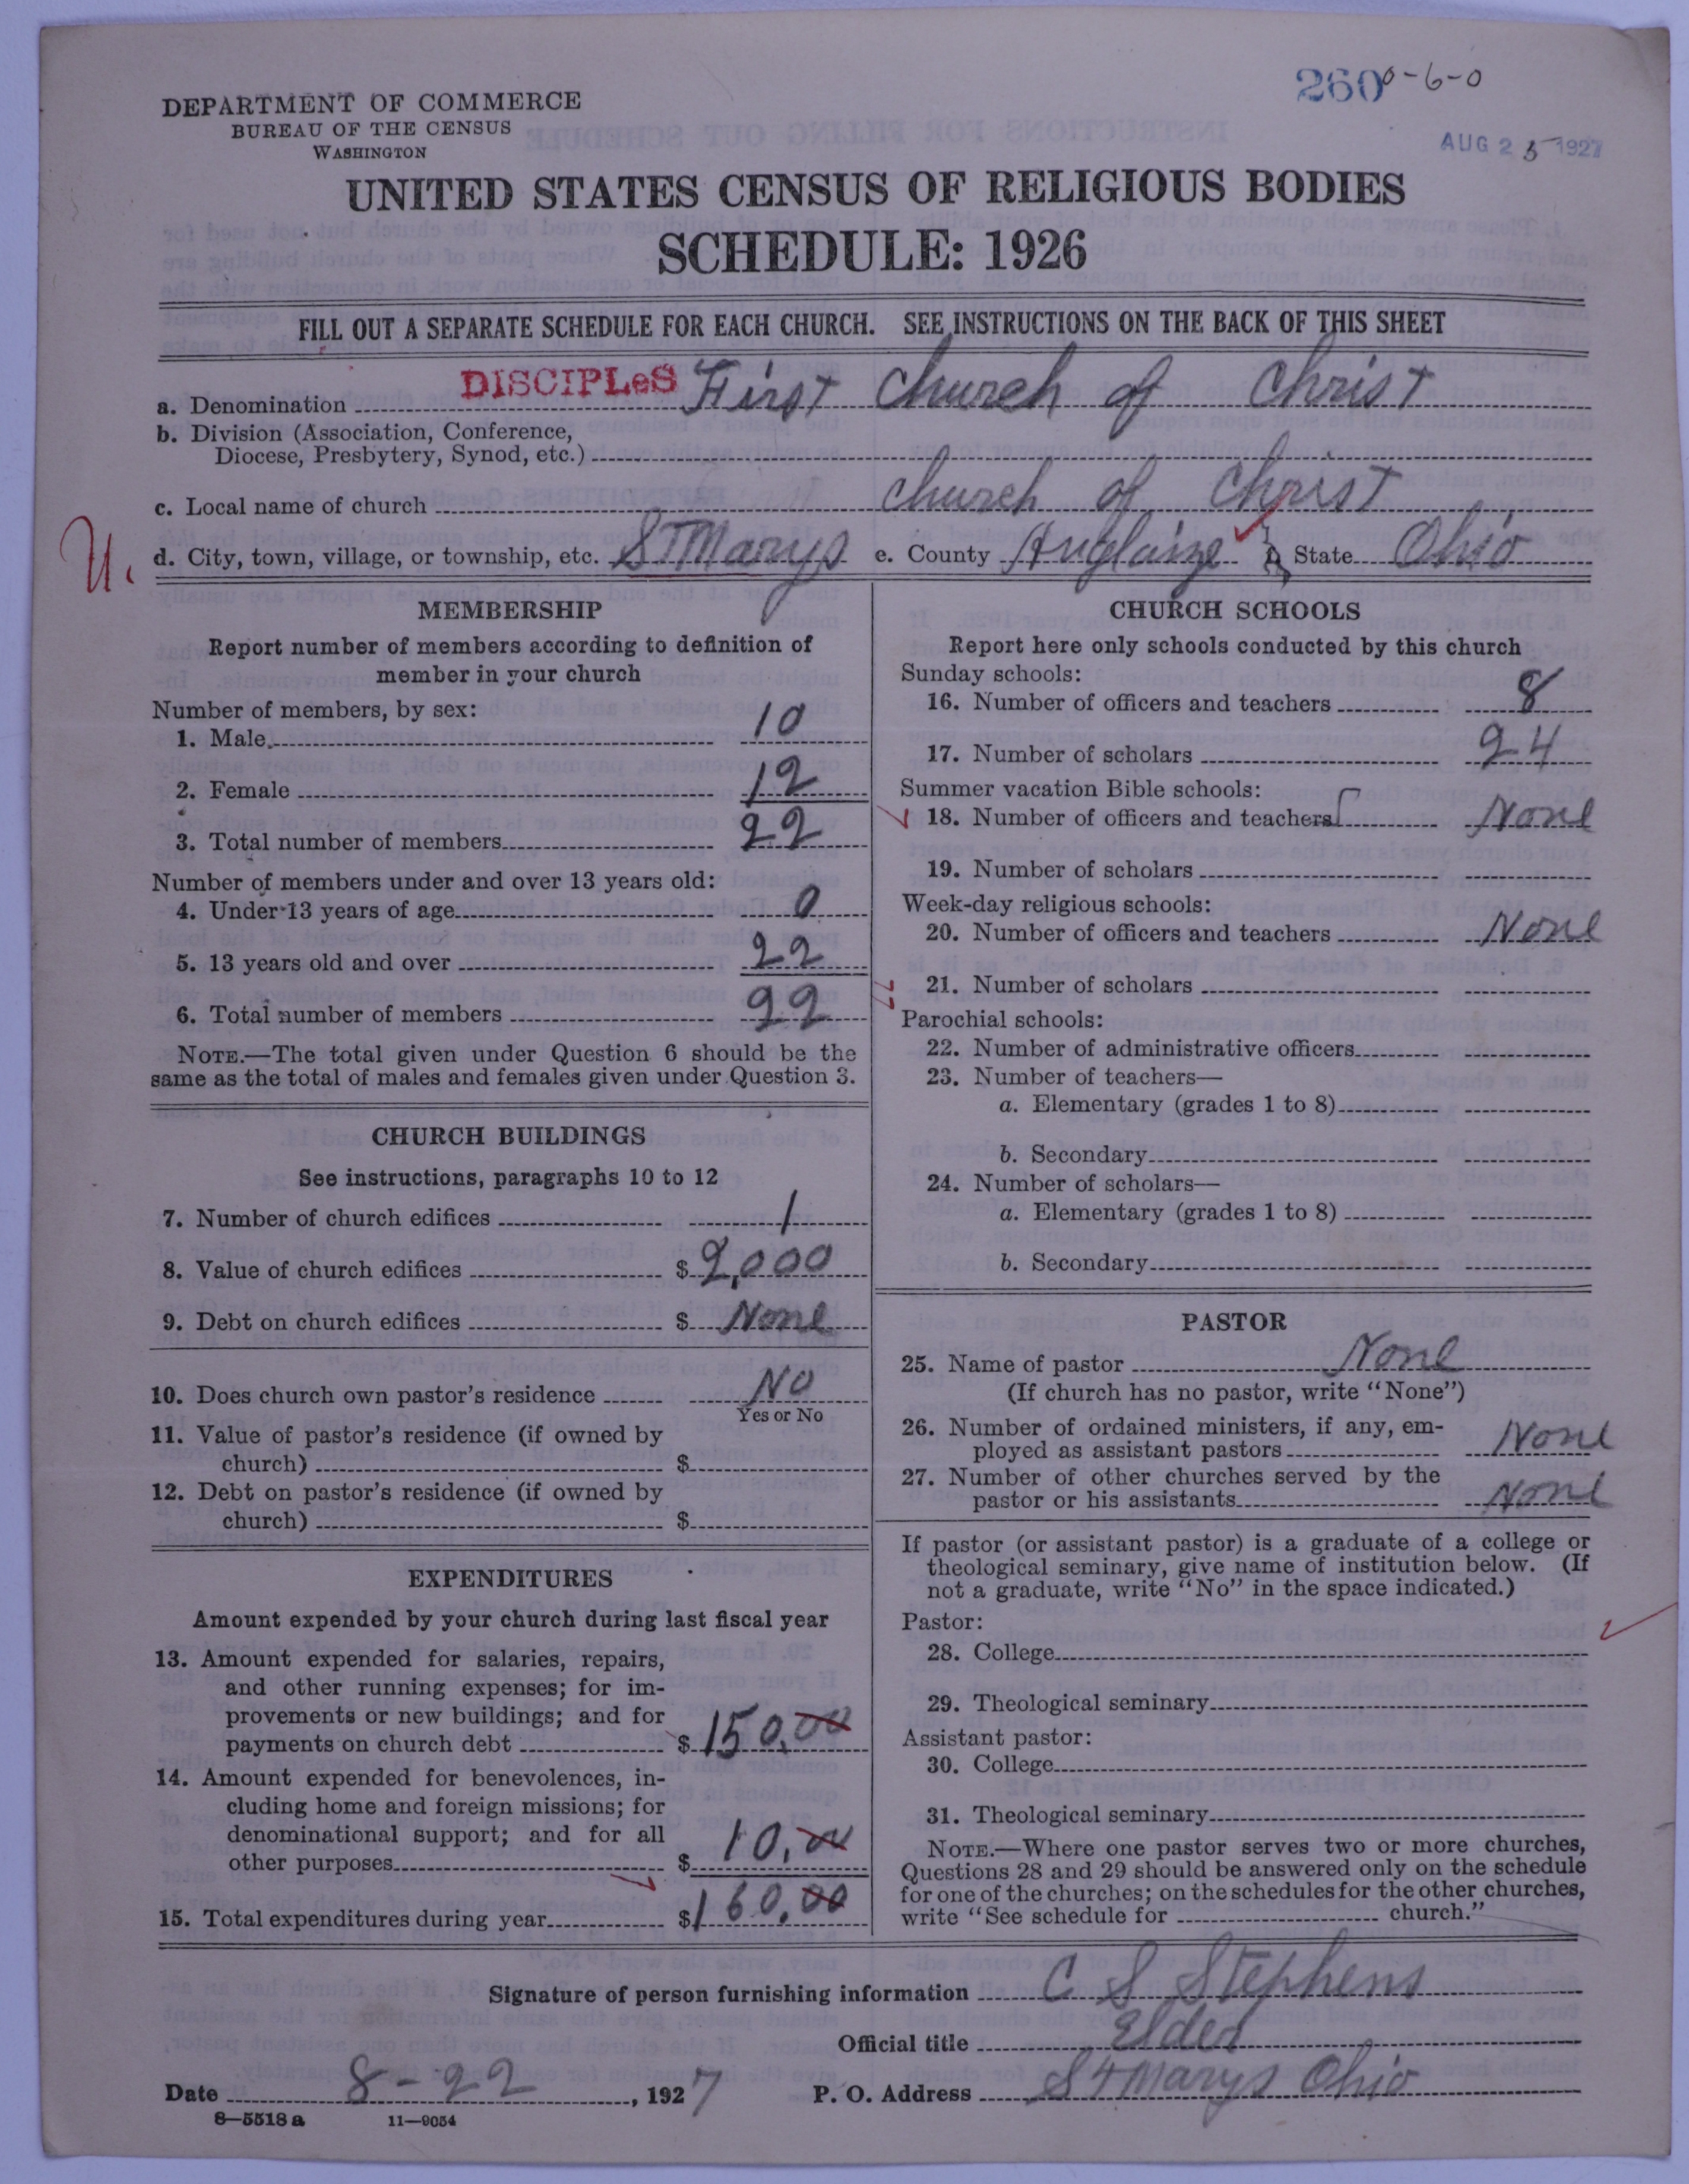 260 0-6-0
DEPARTMENT OF COMMERCE
BUREAU OF THE CENSUS
WASHINGTON
AUG 25 1927
UNITED STATES CENSUS OF RELIGIOUS BODIES
SCHEDULE: 1926
FILL OUT A SEPARATE SCHEDULE FOR EACH CHURCH. SEE INSTRUCTIONS ON THE BACK OF THIS SHEET
a. Denomination DISCIPLeS First Church of Christ
b. Division (Association, Conference,
Diocese, Presbytery, Synod, etc.)
c. Local name of church Church of Christ
U. d. City, town, village, or township, etc. St Marys e. County Auglaize State Ohio
MEMBERSHIP
Report number of members according to definition of
member in your church
Number of members, by sex:
1. Male 10
2. Female 12
3. Total number of members 22
Number of members under and over 13 years old:
4. Under 13 years of age 0
5. 13 years old and over 22
6. Total number of members 22
NOTE.—The total given under Question 6 should be the
same as the total of males and females given under Question 3.
CHURCH BUILDINGS
See instructions, paragraphs 10 to 12
7. Number of church edifices 1
8. Value of church edifices $ 2,000
9. Debt on church edifices $ None
10. Does church own pastor's residence No
Yes or No
11. Value of pastor's residence (if owned by
church) $
12. Debt on pastor's residence (if owned by
church) $
EXPENDITURES
Amount expended by your church during last fiscal year
13. Amount expended for salaries, repairs,
and other running expenses; for im-
provements or new buildings; and for
payments on church debt $ 150.00
14. Amount expended for benevolences, in-
cluding home and foreign missions; for
denominational support; and for all
other purposes $ 10.00
15. Total expenditures during year $ 160.00
CHURCH SCHOOLS
Report here only schools conducted by this church
Sunday schools:
16. Number of officers and teachers 8
17. Number of scholars 24
Summer vacation Bible schools:
18. Number of officers and teachers None
19. Number of scholars
Week-day religious schools:
20. Number of officers and teachers None
21. Number of scholars
Parochial schools:
22. Number of administrative officers
23. Number of teachers—
a. Elementary (grades 1 to 8)
b. Secondary
24. Number of scholars—
a. Elementary (grades 1 to 8)
b. Secondary
PASTOR
25. Name of pastor None
(If church has no pastor, write "None")
26. Number of ordained ministers, if any, em-
ployed as assistant pastors None
27. Number of other churches served by the
pastor or his assistants None
If pastor (or assistant pastor) is a graduate of a college or
theological seminary, give name of institution below. (If
not a graduate, write "No" in the space indicated.)
Pastor:
28. College
29. Theological seminary
Assistant pastor:
30. College
31. Theological seminary
NOTE.—Where one pastor serves two or more churches,
Questions 28 and 29 should be answered only on the schedule
for one of the churches; on the schedules for the other churches,
write "See schedule for church."
Signature of person furnishing information C S Stephens
Official title Elder
Date 8-22, 1927 P. O. Address St Marys Ohio
8—5518 a 11—9054